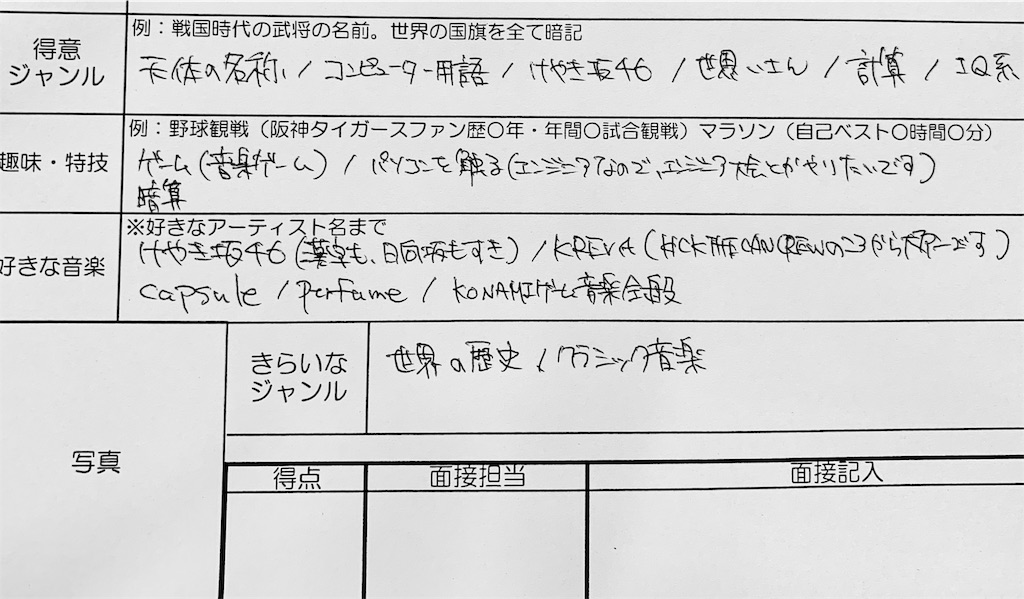 例：戦国時代の武将の名前。世界の国旗を全て暗記
得意
ジャンル
天体の名称 / コンピューター用語 / けやき坂46 / 世界いさん / 計算 / IQ系
例：野球観戦（阪神タイガースファン歴〇年・年間〇試合観戦）マラソン（自己ベスト〇時間〇分）
趣味・特技
ゲーム(音楽ゲーム) / パソコンを触る(エンジニアなので、エンジニア大会とかやりたいです)
暗算
※好きなアーティスト名まで
好きな音楽
けやき坂46(漢字も、日向坂もすき) / KREVA (KICK THE CAN CREWのころから大好きです)
capsule / perfume / KONAMIゲーム音楽全般
きらいな
ジャンル
世界の歴史、クラシック音楽
写真
得点
面接担当
面接記入